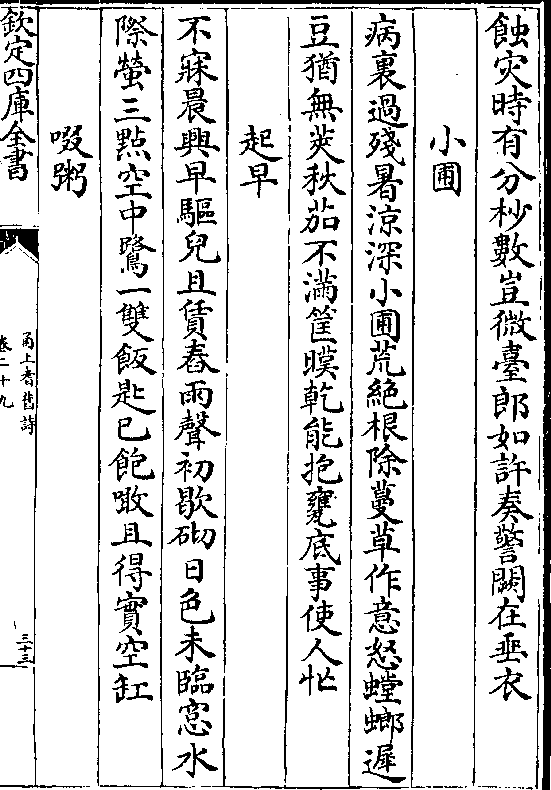 蝕灾時有分杪數豈微臺郎如許奏警闕在垂衣
小圃
病裏過殘暑涼深小圃荒絕根除蔓草作意怒螳蜋遲
豆猶無莢秋茄不滿筐暵乾能抱甕底事使人忙
起早
不寐晨興早驅兒且賃舂雨聲初歇砌日色未臨窻水
際螢三點空中鷺一雙飯匙已飽噉且得實空缸
啜粥
欽定四庫全書
甬上耆舊詩
卷二十九
三十三